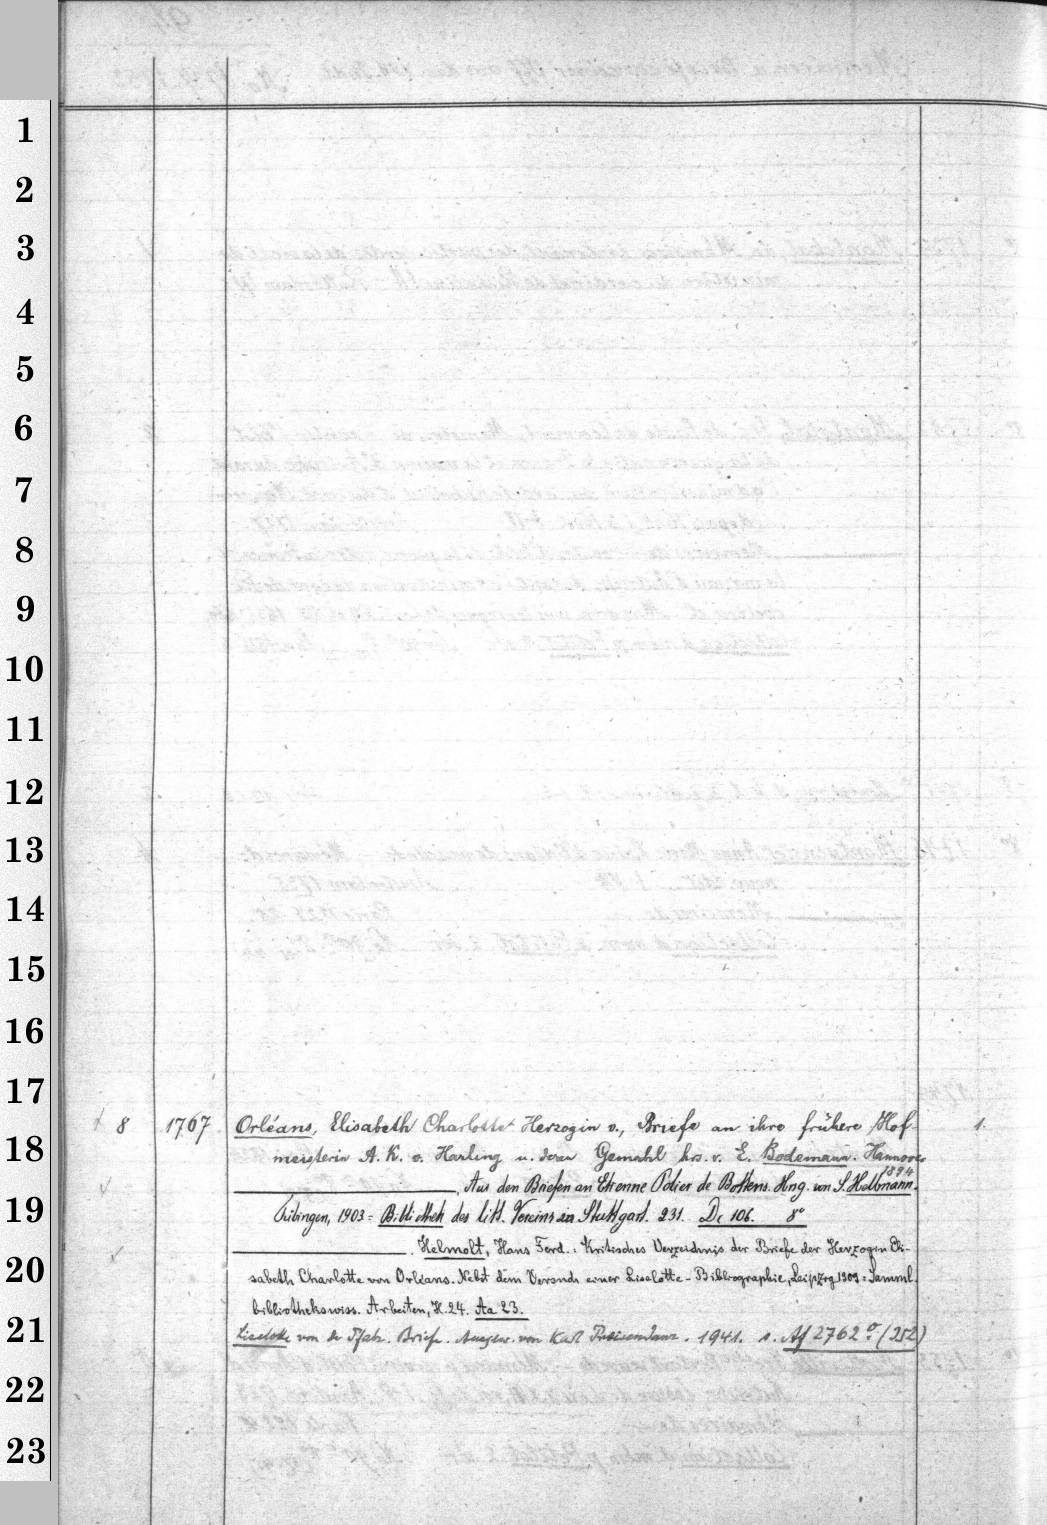 1
2
3
4
5
6
7
8
9
10
11
12
13
14
15
16
17
8 1767 Orléans, Elisabeth Charlotte Herzogin v., Briefe an ihre frühere Hof- 1.
18
meisterin A. K. v. Harling u. deren Gemahl hrs. v. E. Bodemann. Hannover
1894
Aus den Briefen an Etienne Polier de Bottens. Hng. von S. Hellmann.
19
Tübingen, 1903 = Bibliothek des litt. Vereins in Stuttgart. 231. Dc 106. 8°
Helmolt, Hans Ferd.: Kritisches Verzeichnis der Briefe der Herzogin Eli-
20
sabeth Charlotte von Orléans. Nebst dem Versuch einer Liselotte-Bibliographie, Leipzig 1909 = Samml.
bibliothekswiss. Arbeiten, H. 24. Aa 23.
21
Liselotte von der Pfalz. Briefe. Ausgew. von Karl 1941. s. Af 2762° (252)
22
23